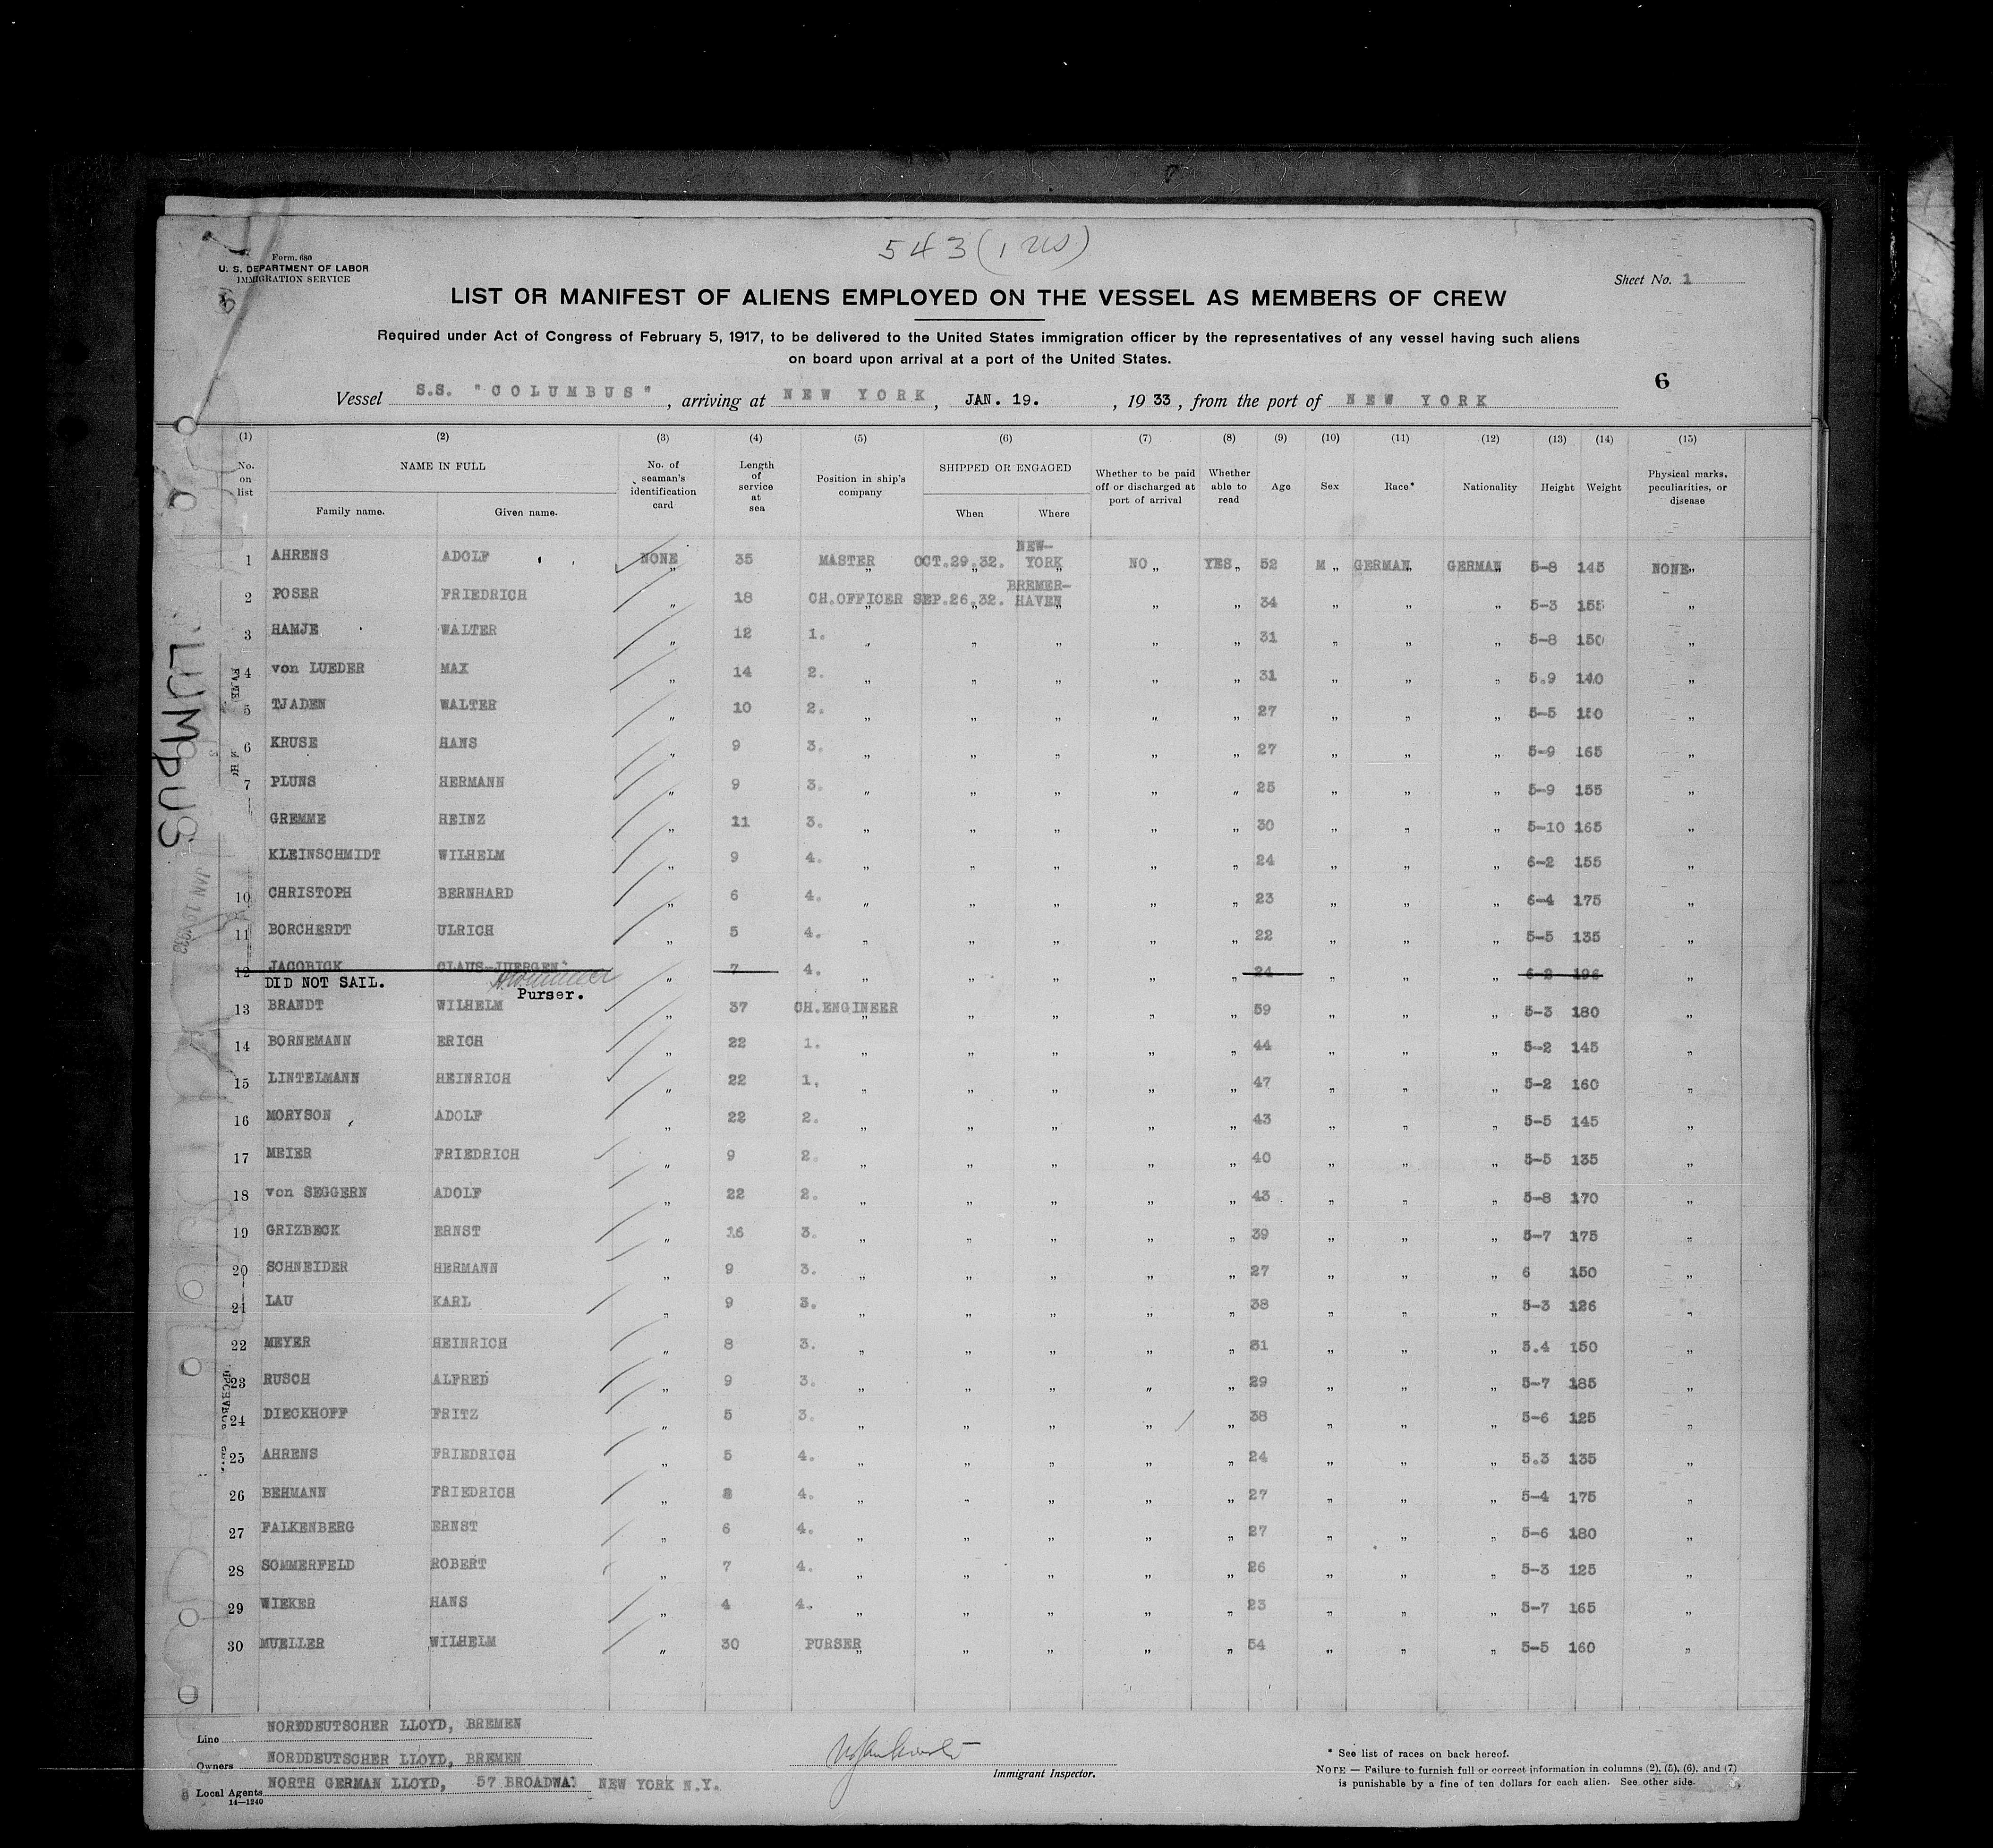 543 (1 US)
Form. 680
U. S. DEPARTMENT OF LABOR
IMMIGRATION SERVICE
Sheet No. 1
LIST OR MANIFEST OF ALIENS EMPLOYED ON THE VESSEL AS MEMBERS OF CREW
Required under Act of Congress of February 5, 1917, to be delivered to the United States immigration officer by the representatives of any vessel having such aliens
on board upon arrival at a port of the United States.
6
Vessel S.S. "COLUMBUS", arriving at NEW YORK, JAN. 19., 1933, from the port of NEW YORK
(1) (2) (3) (4) (5) (6) (7) (8) (9) (10) (11) (12) (13) (14) (15)
No. on list NAME IN FULL Family name. Given name. No. of seaman's identification card Length of service at sea Position in ship's company SHIPPED OR ENGAGED When Where Whether to be paid off or discharged at port of arrival Whether able to read Age Sex Race* Nationality Height Weight Physical marks, peculiarities, or disease
1 AHRENS ADOLF NONE 35 MASTER OCT.29.32. NEW-YORK NO YES 52 M GERMAN GERMAN 5-8 145 NONE
2 POSER FRIEDRICH " 18 CH.OFFICER SEP.26.32. BREMER-HAVEN " " 34 " " " 5-3 155 "
3 HAMJE WALTER " 12 1. " " " " " 31 " " " 5-8 150 "
4 von LUEDER MAX " 14 2. " " " " " 31 " " " 5.9 140 "
5 TJADEN WALTER " 10 2. " " " " " 27 " " " 5-5 150 "
6 KRUSE HANS " 9 3. " " " " " 27 " " " 5-9 165 "
7 PLUNS HERMANN " 9 3. " " " " " 25 " " " 5-9 155 "
GREMME HEINZ " 11 3. " " " " " 30 " " " 5-10 165 "
KLEINSCHMIDT WILHELM " 9 4. " " " " " 24 " " " 6-2 155 "
10 CHRISTOPH BERNHARD " 6 4. " " " " " 23 " " " 6-4 175 "
11 BORCHERDT ULRICH " 5 4. " " " " " 22 " " " 5-5 135 "
12 JACOBICK CLAUS-JUERGEN " 7 4. " " " " " 24 " " " 6-2 196 "
DID NOT SAIL. Purser.
13 BRANDT WILHELM " 37 CH.ENGINEER " " " " 59 " " " 5-3 180 "
14 BORNEMANN ERICH " 22 1. " " " " " 44 " " " 5-2 145 "
15 LINTELMANN HEINRICH " 22 1, " " " " " 47 " " " 5-2 160 "
16 MORYSON ADOLF " 22 2. " " " " " 43 " " " 5-5 145 "
17 MEIER FRIEDRICH " 9 2. " " " " " 40 " " " 5-5 135 "
18 von SEGGERN ADOLF " 22 2. " " " " " 43 " " " 5-8 170 "
19 GRIZBECK ERNST " 16 3. " " " " " 39 " " " 5-7 175 "
20 SCHNEIDER HERMANN " 9 3. " " " " " 27 " " " 6 150 "
21 LAU KARL " 9 3. " " " " " 38 " " " 5-3 126 "
22 MEYER HEINRICH " 8 3. " " " " " 31 " " " 5.4 150 "
23 RUSCH ALFRED " 9 3. " " " " " 29 " " " 5-7 185 "
24 DIECKHOFF FRITZ " 5 3. " " " " " 38 " " " 5-6 125 "
25 AHRENS FRIEDRICH " 5 4. " " " " " 24 " " " 5.3 135 "
26 BEHMANN FRIEDRICH " 8 4. " " " " " 27 " " " 5-4 175 "
27 FALKENBERG ERNST " 6 4. " " " " " 27 " " " 5-6 180 "
28 SOMMERFELD ROBERT " 7 4. " " " " " 26 " " " 5-3 125 "
29 WIEKER HANS " 4 4. " " " " " 23 " " " 5-7 165 "
30 MUELLER WILHELM " 30 PURSER " " " " 54 " " " 5-5 160 "
Line NORDDEUTSCHER LLOYD, BREMEN
Owners NORDDEUTSCHER LLOYD, BREMEN
Local Agents NORTH GERMAN LLOYD, 57 BROADWAY NEW YORK N.Y.
14—1240
Immigrant Inspector.
* See list of races on back hereof.
NOTE — Failure to furnish full or correct information in columns (2), (5), (6), and (7)
is punishable by a fine of ten dollars for each alien. See other side.
LUMBUS
JAN 19 1933